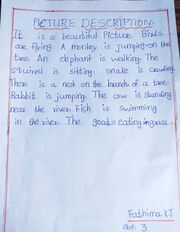 PICTURE DESCRIPTION
It is a beautiful Picture. Birds
are flying. A monkey is jumping on the
tree. An elephant is walking. The
squirrel is sitting. snake is crawling.
There is a nest on the branch of a tree.
Rabbit is jumping. The cow is standing
near the river. Fish is swimming
in the river. The goat is eating grass.
Fathima K T
Std: 3